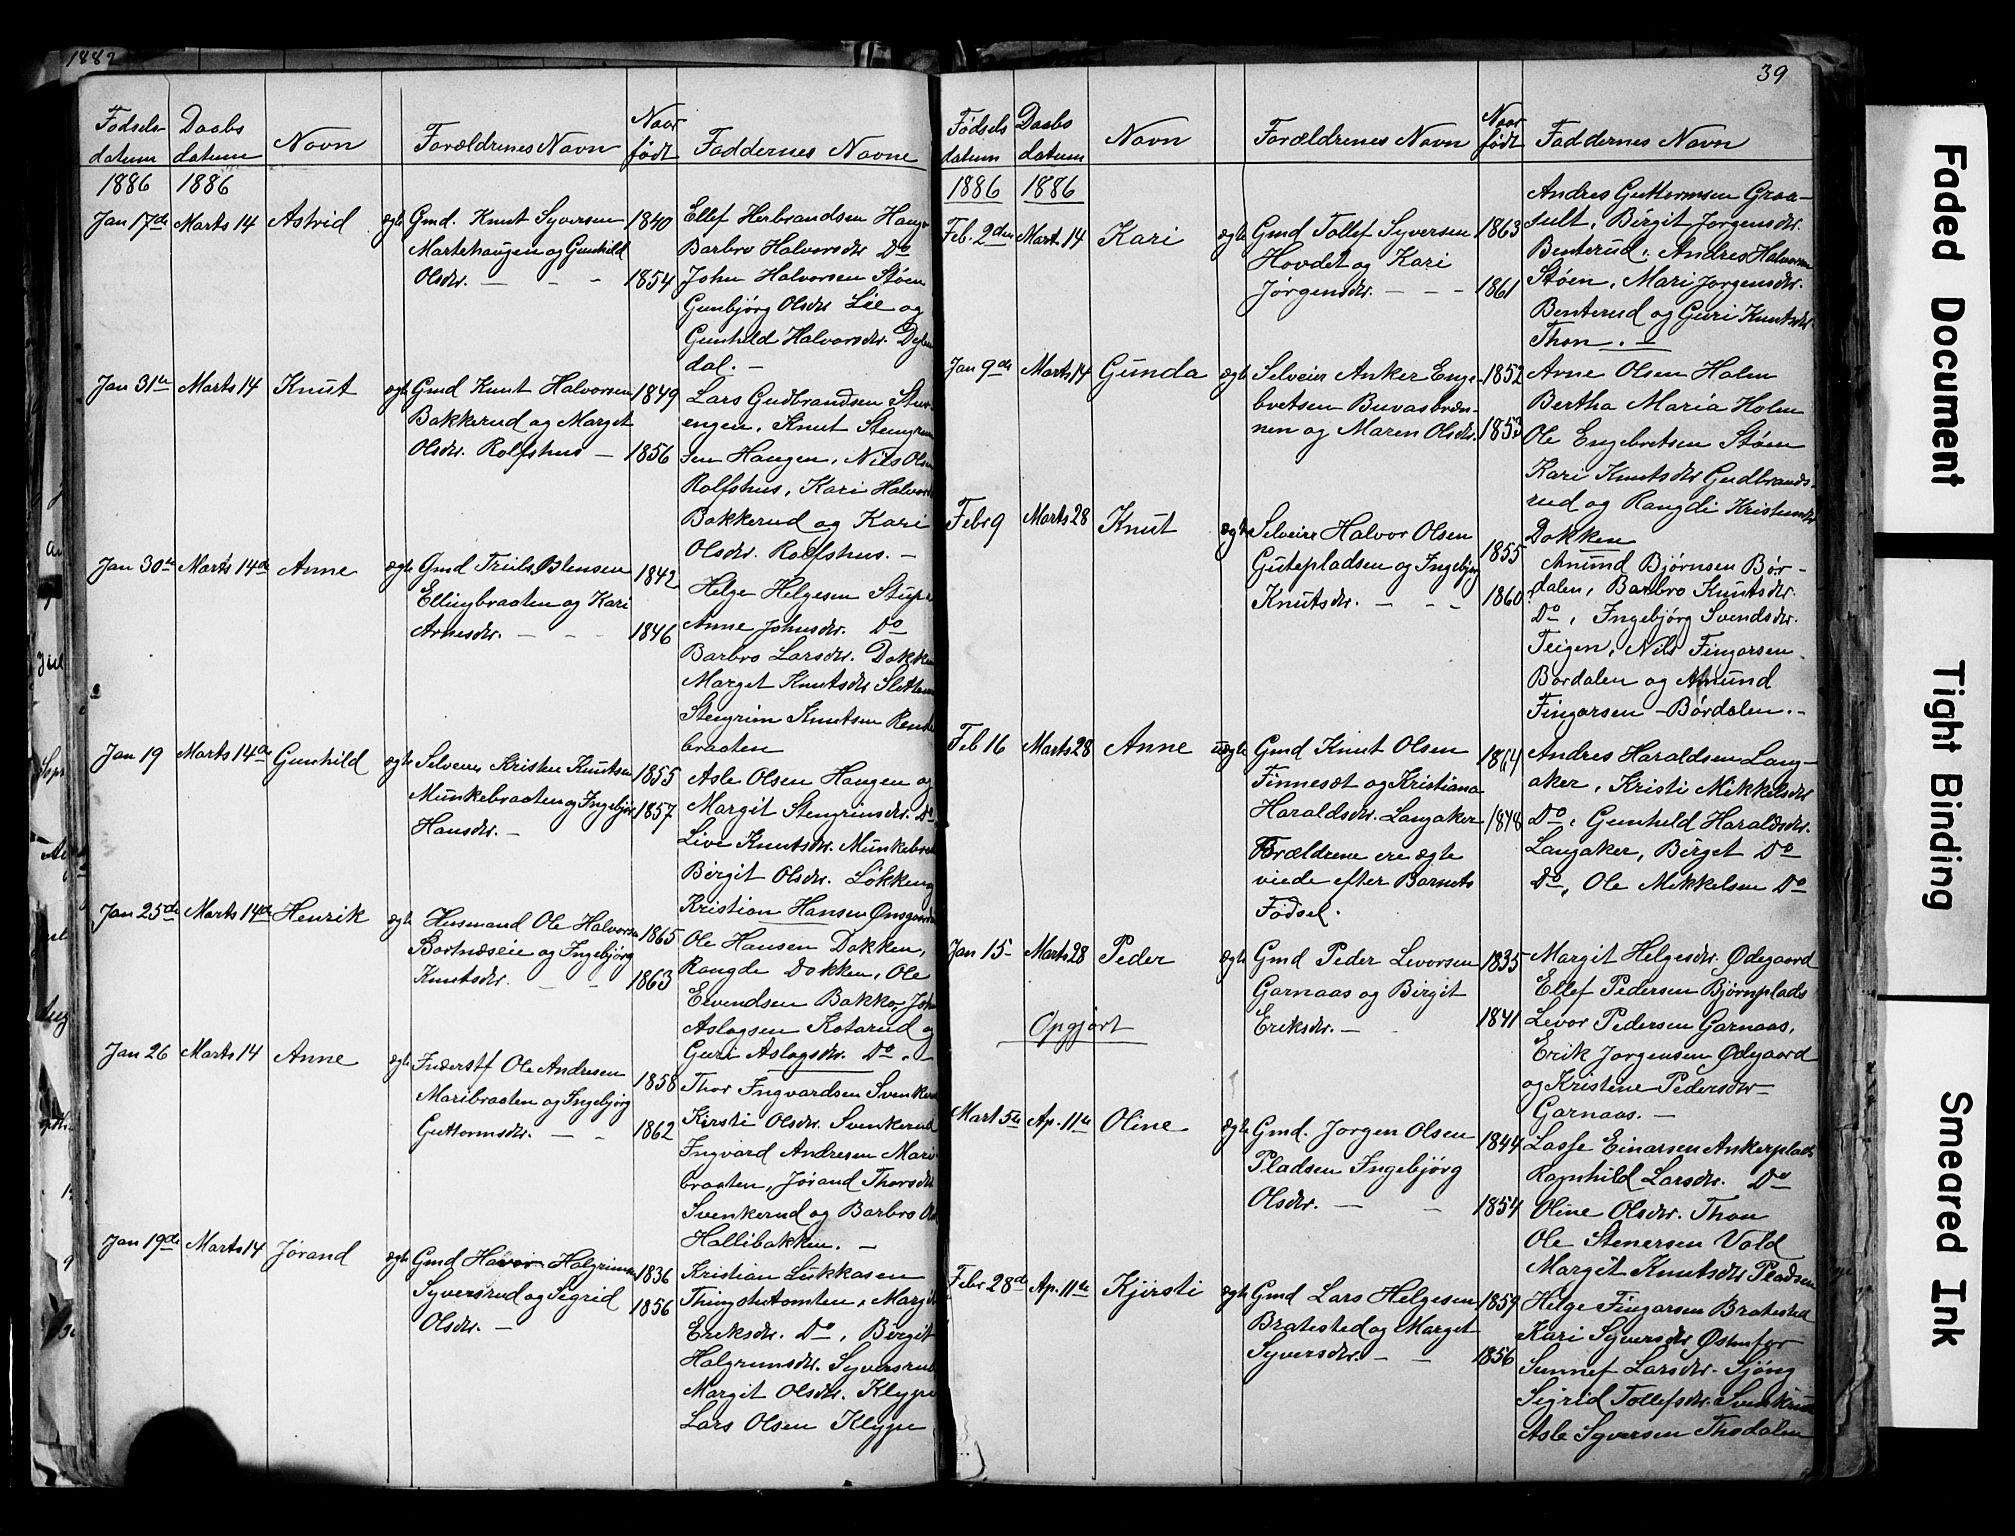 1882
Fødsels- Daabs Navn Forældrenes Navn Naar Faddernes Navne
datum datum født
1886 1886
Jan 17de Marts 14 Astrid ægte Gmd. Knut Syversen 1840 Ellef Herbrandsen Haug
Martehaugen og Gunhild Barbro Halvorsdr. Do
Olsdr. — - - 1854 John Halvorsen Støen
Gunbjørg Olsdr Lie og
Gunhild Halvorsdr.
dal. —
Jan 31te Marts 14 Knut ægte Gmd Knut Halvorsen 1849 Lars Gudbrandsen
Bakkerud og Marget engen, Knut Stengrim
Olsdr. Rolfshus — 1856 sen Haugen, Nils Olsen
Rolfshus, Kari Halvors
Bakkerud og Kari
Olsdr. Rolfshus. —
Jan 30te Marts 14de Anne ægte Gmd Truls Blensen 1842 Helge Helgesen
Ellingbraaten og Kari Anne Johnsdr. Do
Arnesdr. — - - 1846 Barbro Larsdr. Dokken
Marget Knutsdr
Stengrim Knutsen
braaten
Jan 19 Marts 14de Gunhild ægte Selveier Kristen Knutsen 1855 Asle Olsen Haugen og
Munkebraaten og Ingebjør 1857 Margit Stengrimsdr. Do
Hansdr. — Live Knutsdr. Munkebraa
Birgit Olsdr. Løkken og
Kristian Hansen
Jan 25de Marts 14de Henrik ægte Husmand Ole Halvorsen 1865 Ole Hansen Dokken,
Bortnæseie og Ingebjørg Rangde Dokken, Ole
Knutsdr. - - 1863 Eivendsen Bakko, John
Aslagsen Rotarud og
Guri Aslagsdr. Do. —
Jan 26 Marts 14 Anne ægte Inderstf Ole Andresen 1858 Thor Ingvardsen Svenkerud
Maribraaten og Ingebjørg Kirsti Olsdr. Svenkerud
Guttormsdr. — - 1862 Ingvard Andresen Mari
braaten, Jørand Thorsdr
Svenkerud og Barbro Ols
Hallibakken. —
Jan 19de Marts 14 Jørand ægte Gmd Halvor Halgrimsen 1836 Kristian Lukkasen
Syversrud og Sigrid 1856 Thingstutomten, Margit
Olsdr. — Eriksdr. Do, Birgit
Halgrimsdr. Syversrud
Margit Olsdr. Klype
Lars Olsen Klype
39
Fødsels Daabs Navn Forældrenes Navn Naar Faddernes Navn
datum datum født
1886 1886 Andres Guttormsen Graa-
Feb. 2den Mart. 14 Kari ægte Gmd Tollef Syversen 1863 sult, Birgit Jørgensdr.
Hovdet og Kari Benterud, Andres Halvorsen
Jørgensdr. — - - 1861 Støen, Mari Jørgensdr.
Benterud og Guri Knutsdr
Thon. —
Jan 9de Marts 14 Gunda ægte Selveier Anker Enge- 1852 Arne Olsen Holm
bretsen Buvasbræn- Bertha Maria Holm
nen og Maren Olsdr. 1853 Ole Engebretsen Støen
Kari Knutsdr Gudbrands-
rud og Rangdi Kristensdr
Dokken
Febr 9 Marts 28 Knut ægte Selveier Halvor Olsen 1855 Anund Bjørnsen Bør-
Gutepladsen og Ingebjørg dalen, Barbro Knutsdr.
Knutsdr. — - - 1860 Do, Ingebjørg Svendsdr.
Teigen, Nils Fingarsen
Børdalen og Amund
Fingarsen Børdalen. —
Feb 16 Marts 28 Anne uægte Gmd Knut Olsen 1864 Andres Haraldsen Lang-
Finnesæt og Kristiana aker, Kristi Mikkelsdr
Haraldsdr. Langaker 1848 Do, Gunhild Haraldsdr.
Forældrene ere ægte Langaker, Birget Do
viede efter Barnets Do, Ole Mikkelsen Do
Fødsel.
Jan 15 Marts 28 Peder ægte Gmd Peder Levorsen 1835 Margit Helgesdr. Ødegaard
Garnaas og Birgit Ellef Pedersen Bjørnplads
Opgjørt Eriksdr. — 1841 Levor Pedersen Garnaas,
Erik Jørgensen Ødegaard
og Kristine Pedersdr
Garnaas. —
Mart 5te Ap. 11te Oline ægte Gmd. Jørgen Olsen 1844 Lasse Einarsen Ankerplads
Pladsen Ingebjørg Ragnhild Larsdr. Do
Olsdr. — - 1854 Oline Olsdr. Thon
Ole Stenersen Vold
Margit Knutsdr Pladsen
Febr 28de Ap. 11te Kjirsti ægte Gmd Lars Helgesen 1859 Helge Fingarsen Bratested
Bratested og Marget Kari Syversdr Østenfor
Syversdr. — - 1856 Sunnef Larsdr. Sjøng
Sigrid Tollefsdr. Svenkerud
Asle Syversen Thodalen
Faded Document
Tight Binding
Smeared Ink